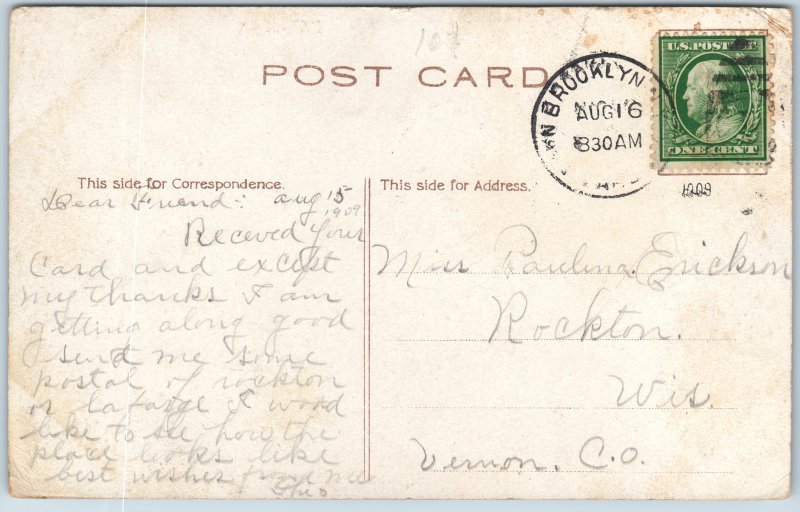 10¢
POST CARD
BROOKLYN
AUG 16
830AM
1909
U.S. POSTAGE
ONE CENT
This side for Correspondence.
Dear Friend: aug 15
1909
Receved your
Card and except
my thanks I am
getting along good
send me some
postal of rockton
or lafarge I wood
like to see how the
place looks like
best wishes from me
This side for Address.
Miss Paulina Erickson
Rockton.
Wis.
Vernon. C.O.